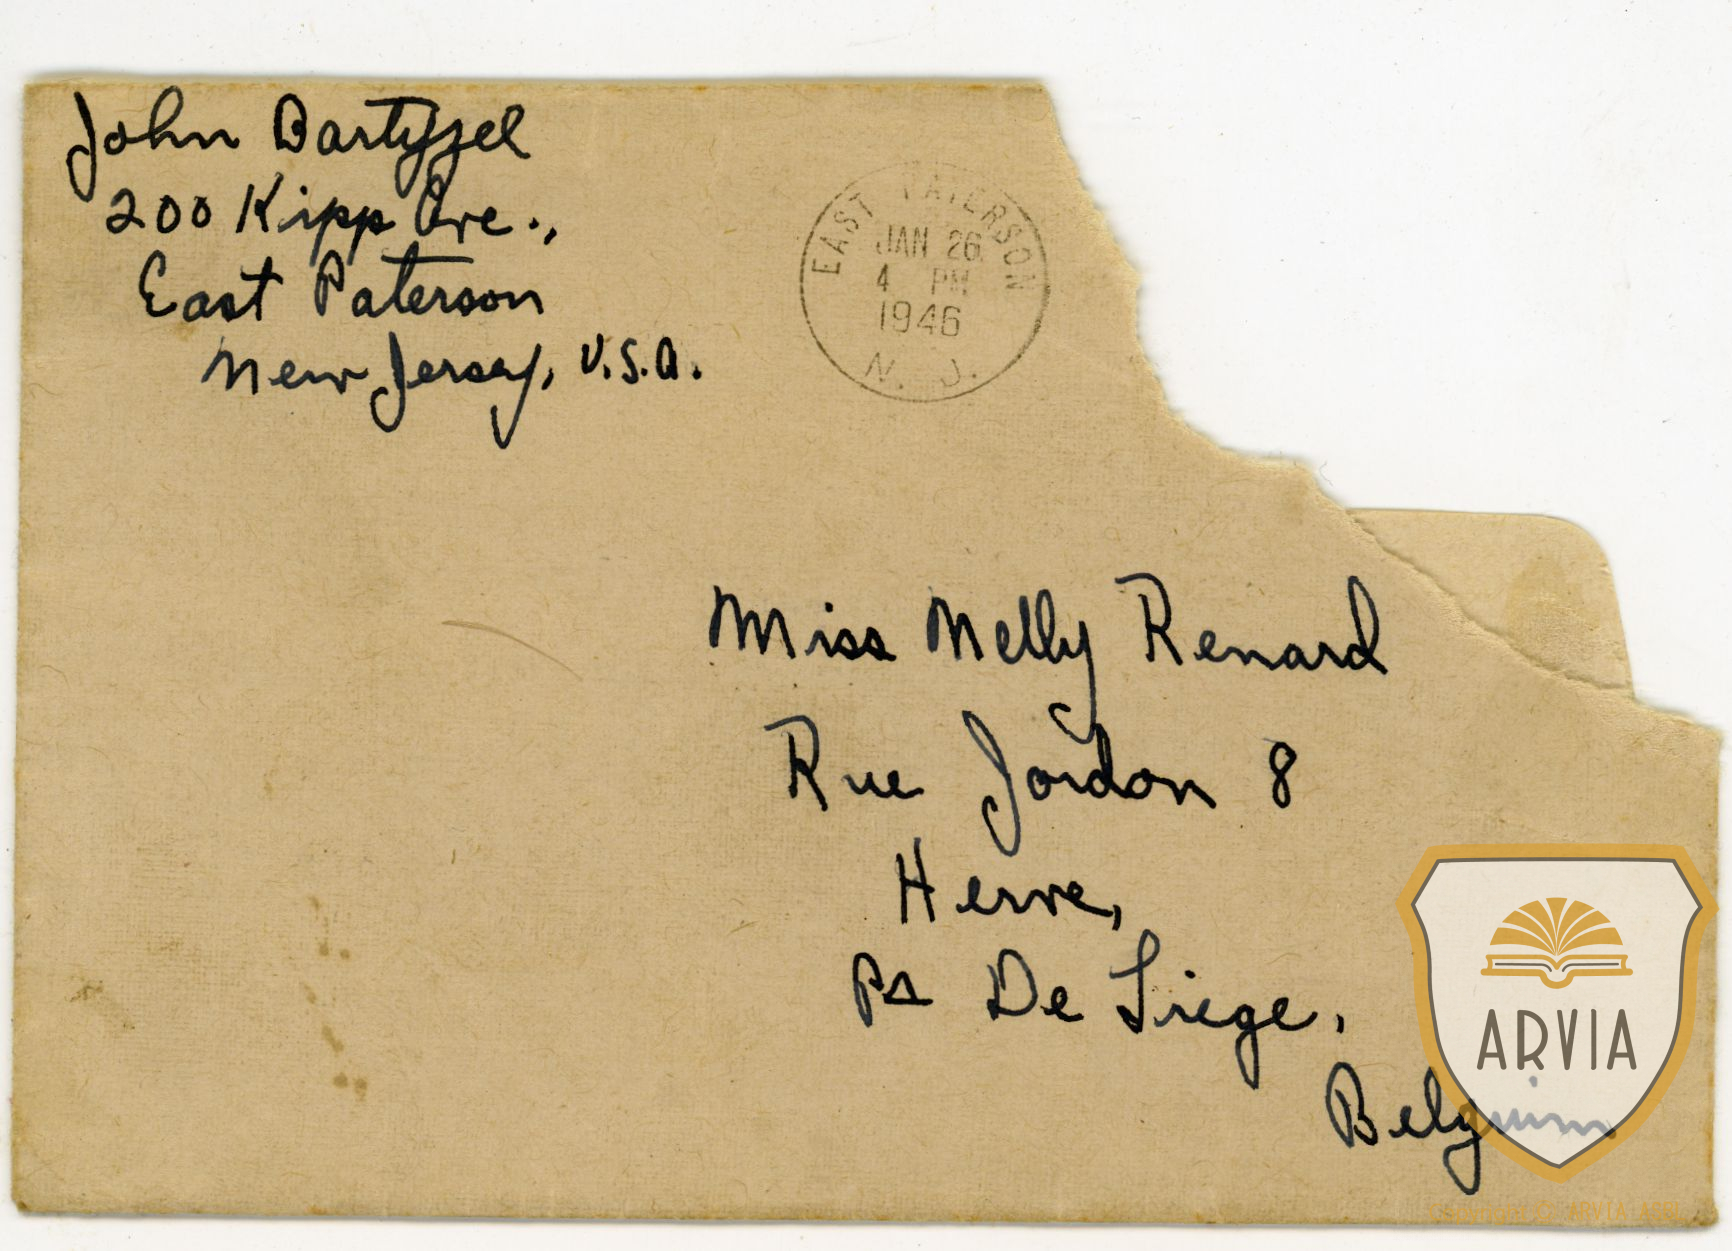 John Bartyzel
200 Kipp Ave.,
East Paterson
New Jersey, U.S.A.
EAST PATERSON
JAN 26
4 PM
1946
N. J.
Miss Melly Renard
Rue Jordon 8
Herve,
Ps De Liege,
Belgium
ARVIA
Copyright © ARVIA ASBL